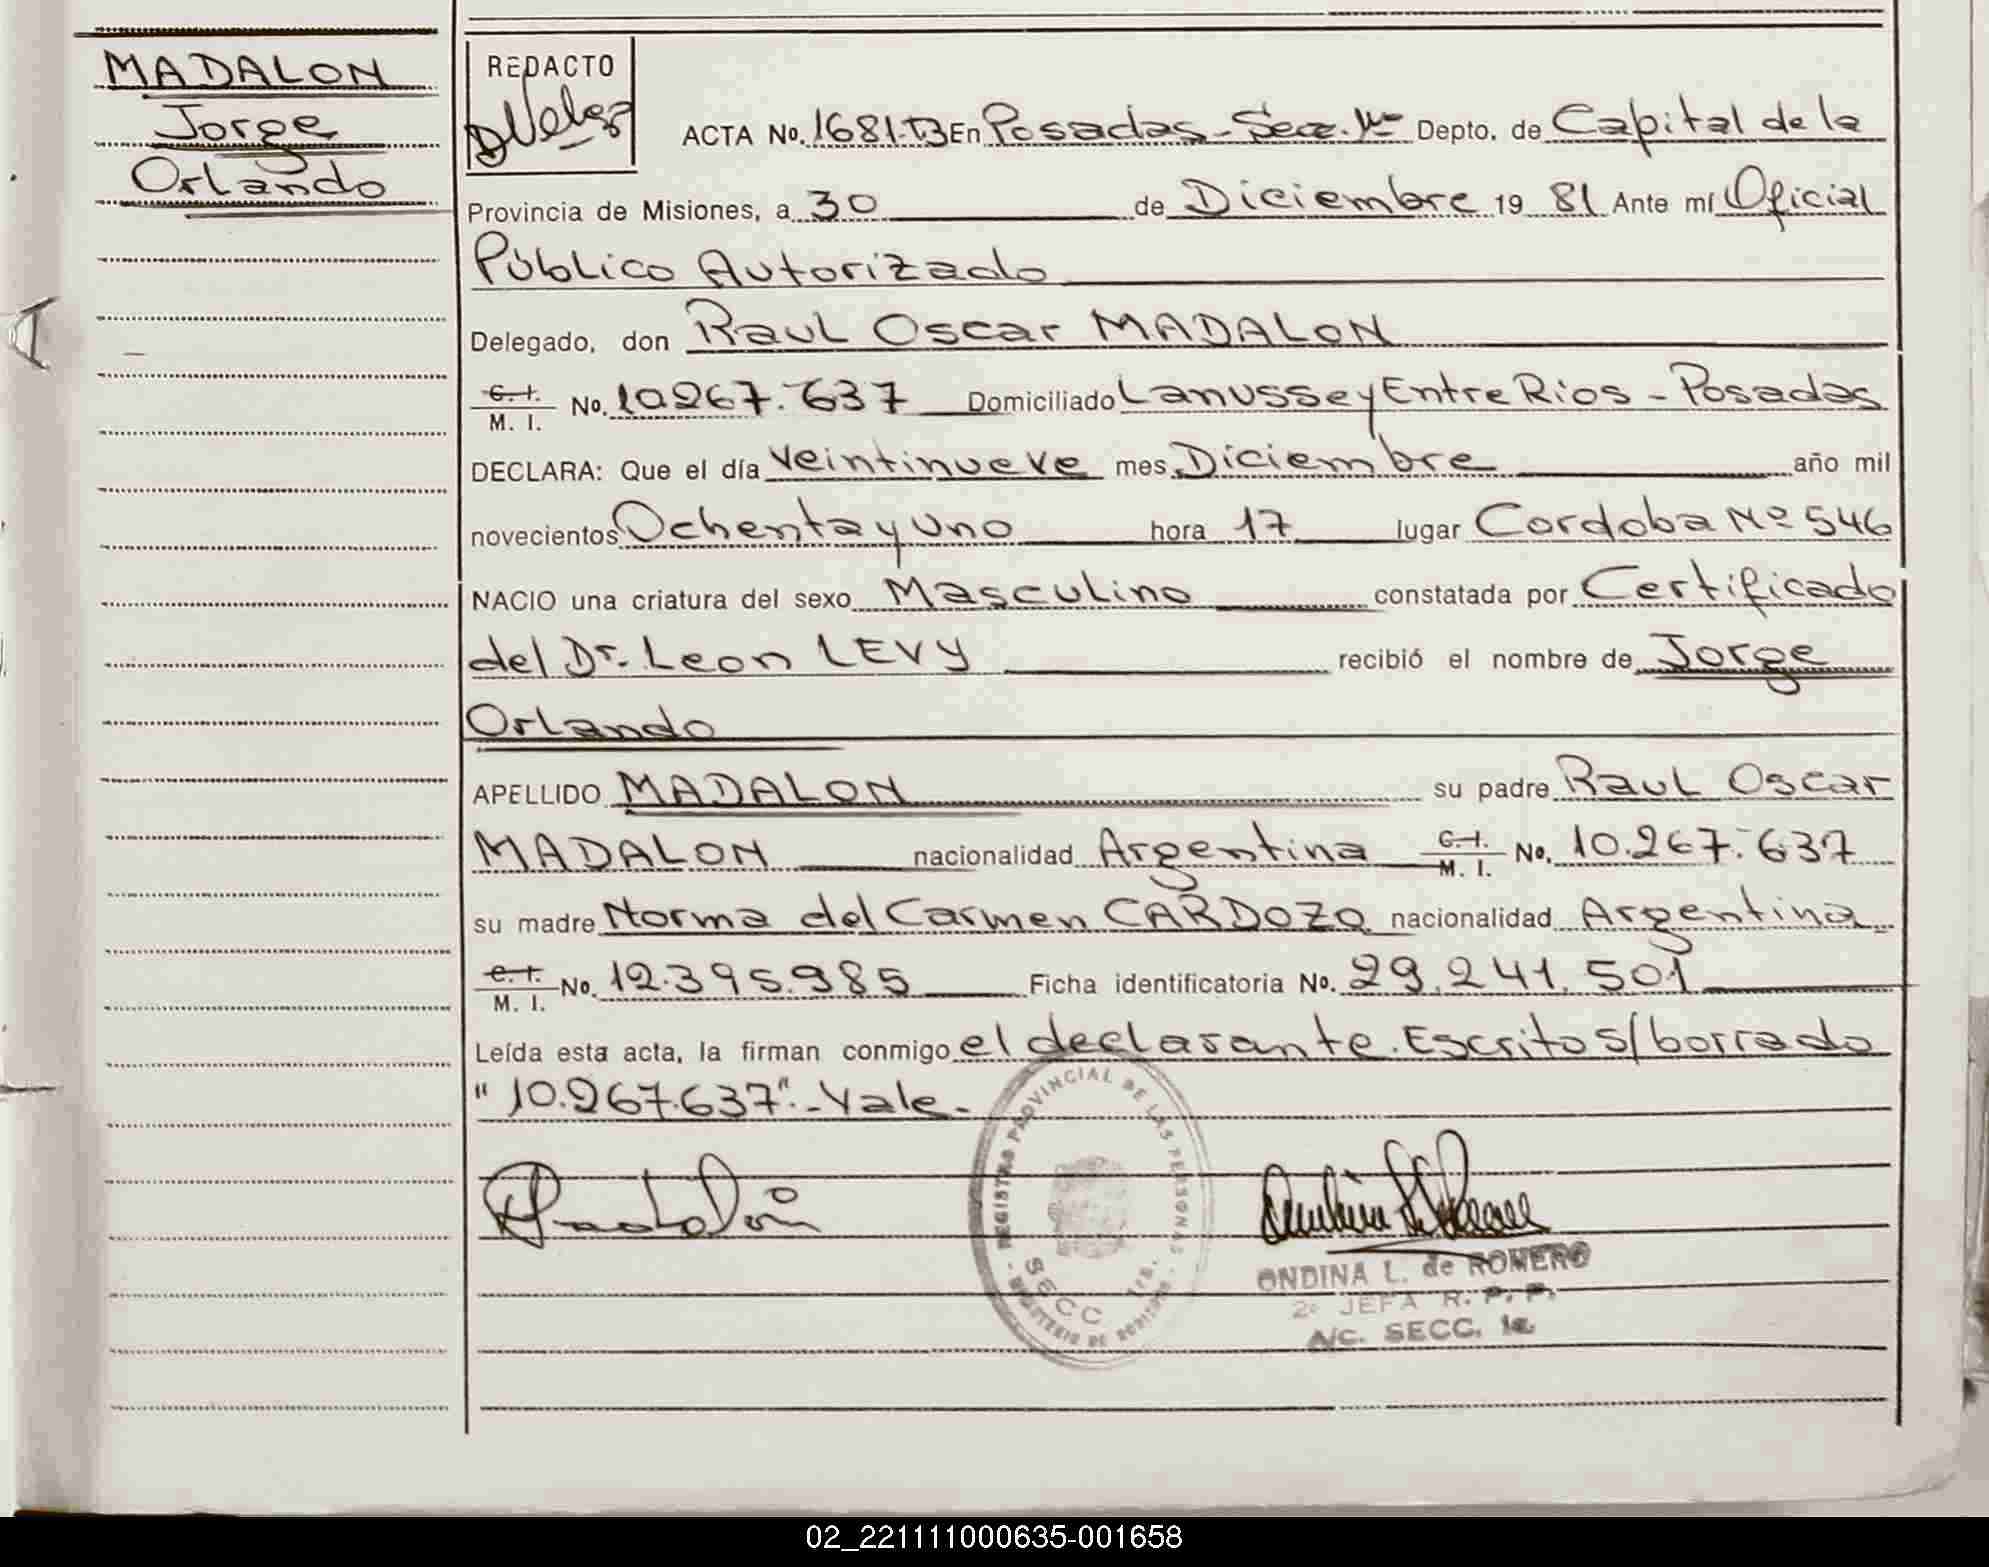 MADALON
Jorge
Orlando
REDACTO
DVelez
ACTA No. 1681-B En Posadas-Secc. 1ª Depto. de Capital de la
Provincia de Misiones, a 30 de Diciembre 19 81 Ante mí Oficial
Público Autorizado
Delegado, don Raul Oscar MADALON
C. I.
M. I. No. 10.267.637 Domiciliado Lanusse y Entre Rios - Posadas
DECLARA: Que el día veintinueve mes Diciembre año mil
novecientos Ochenta y Uno hora 17 lugar Cordoba Nº 546
NACIO una criatura del sexo Masculino constatada por Certificado
del Dr. Leon LEVY recibió el nombre de Jorge
Orlando
APELLIDO MADALON su padre Raul Oscar
MADALON nacionalidad Argentina C. I.
M. I. No. 10.267.637
su madre Norma del Carmen CARDOZO nacionalidad Argentina
C. I.
M. I. No. 12.395.985 Ficha identificatoria No. 29.241.501
Leída esta acta, la firman conmigo el declarante. Escrito s/borrado
"10.267.637".-Vale-
REGISTRO PROVINCIAL DE LAS PERSONAS
SECC 1ra.
MINISTERIO DE GOBIERNO
ONDINA L. de ROMERO
2º JEFA R. P. P.
A/C. SECC. 1a.
02_221111000635-001658